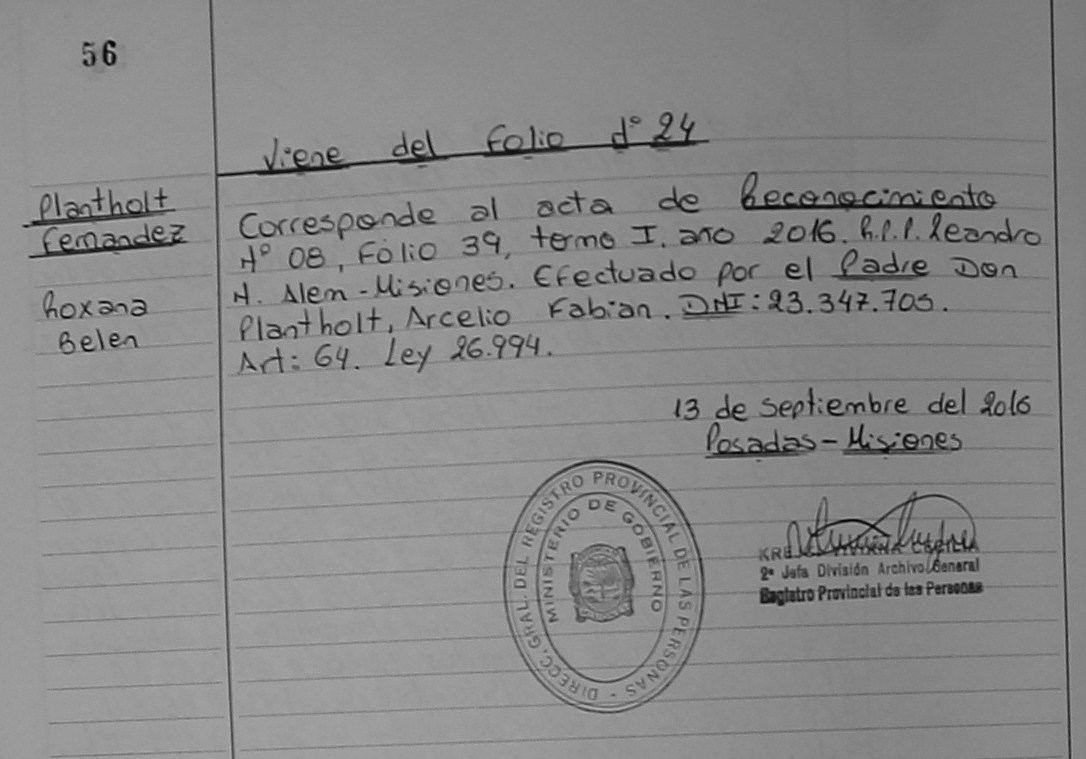 56
Viene del Folio Nº 24
Plantholt
Fernandez
Roxana
Belen
Corresponde al acta de Reconocimiento
Nº 08, Folio 39, tomo I. año 2016. R.P.P. Leandro
N. Alem - Misiones. Efectuado por el Padre Don
Plantholt, Arcelio Fabian. DNI: 23.347.705.
Art: 64. Ley 26.994.
13 de Septiembre del 2016
Posadas - Misiones
DIRECC. GRAL. DEL REGISTRO PROVINCIAL DE LAS PERSONAS -
MINISTERIO DE GOBIERNO
2ª Jefa División Archivo General
Registro Provincial de las Personas